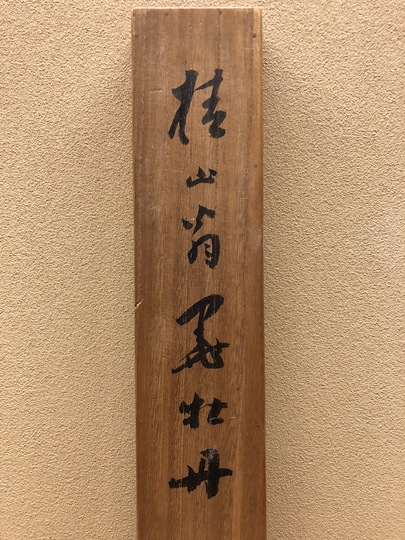 椿山翁墨牡丹